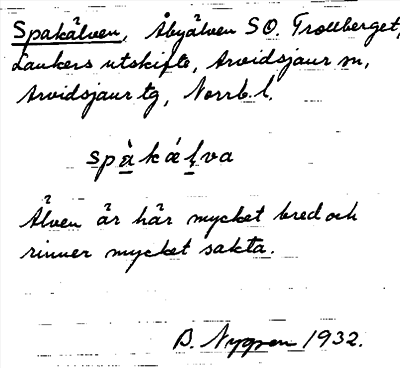 Spakälven, Åbyälven SO. Trollberget,
Laukers utskifte, Arvidsjaur sn,
Arvidsjaur tg, Norrb. l.
spàkálva
Älven är här mycket bred och
rinner mycket sakta.
B. Nygren 1932.